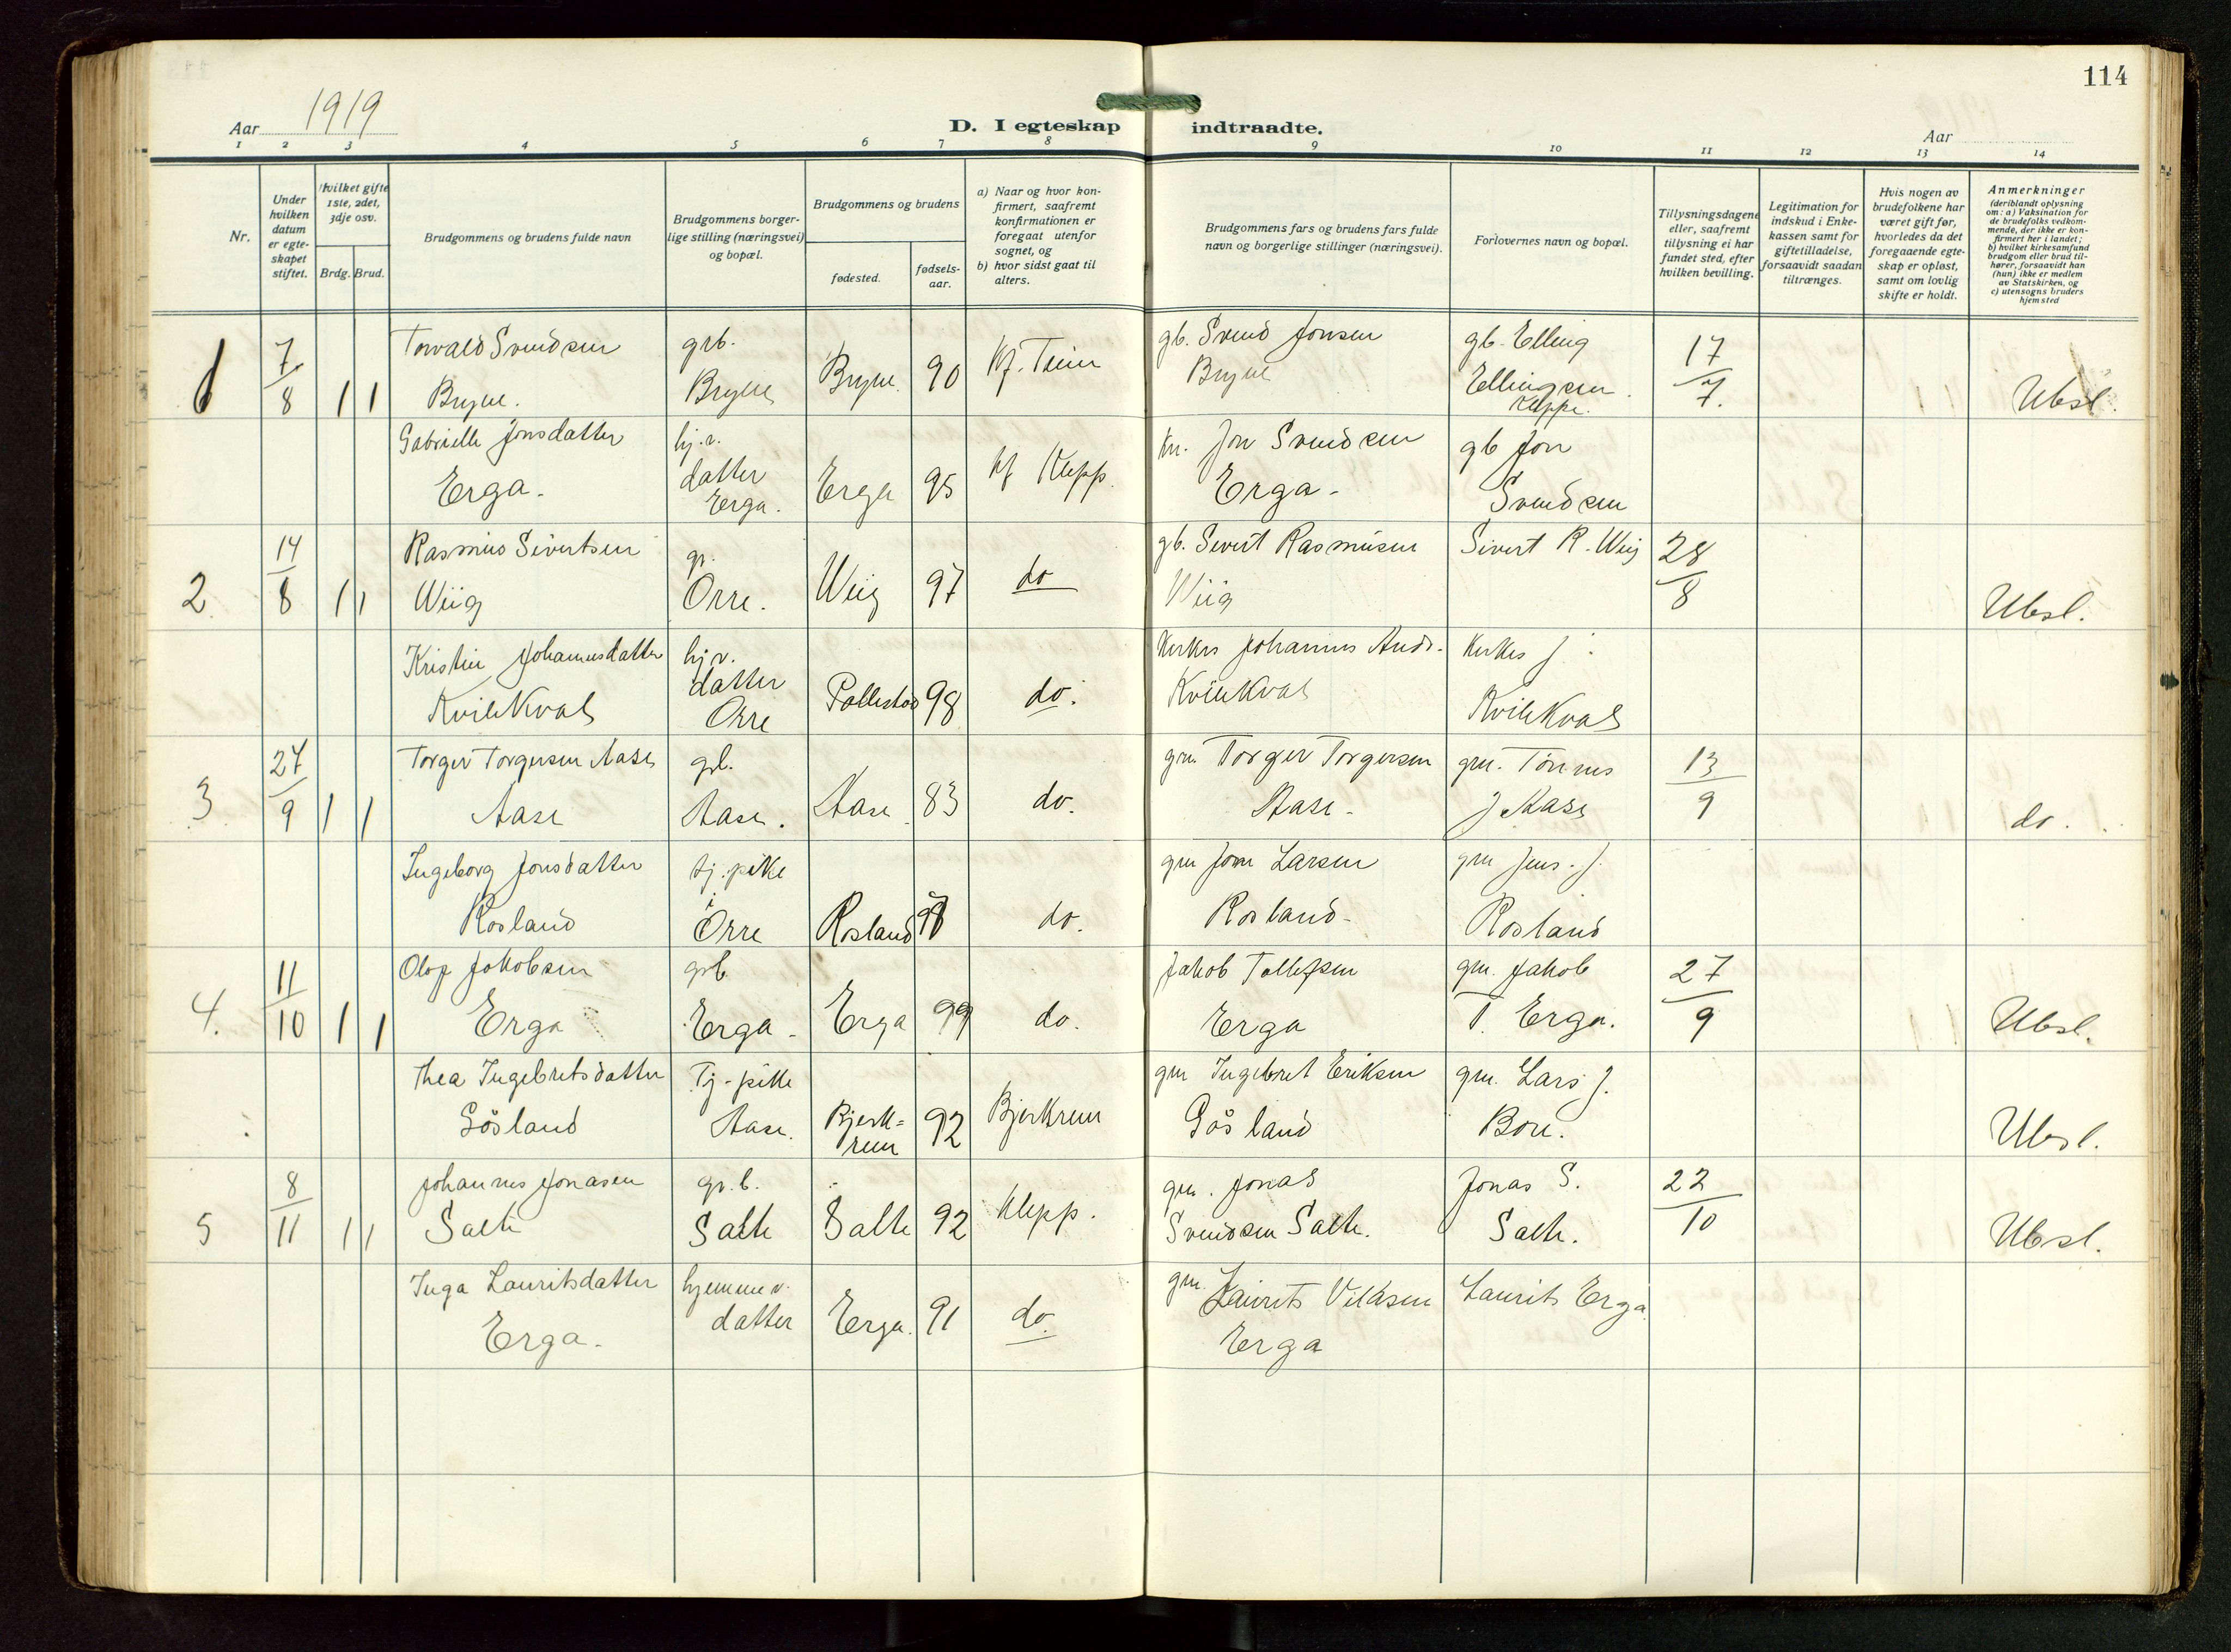 114
Aar 1919
D. I egteskap indtraadte.
Aar
1 2 3 4 5 6 7 8 9 10 11 12 13 14
Nr.
Under hvilken datum er egte-skapet stiftet.
Hvilket gifte 1ste, 2det, 3dje osv.
Brdg. Brud.
Brudgommens og brudens fulde navn
Brudgommens borger-
lige stilling (næringsvei)
og bopæl.
Brudgommens og brudens
fødested.
fødsels-
aar.
a) Naar og hvor kon-
firmert, saafremt
konfirmationen er
foregaat utenfor
sognet, og
b) hvor sidst gaat til
alters.
Brudgommens fars og brudens fars fulde
navn og borgerlige stillinger (næringsvei).
Forlovernes navn og bopæl.
Tillysningsdagene
eller, saafremt
tillysning ei har
fundet sted, efter
hvilken bevilling.
Legitimation for
indskud i Enke-
kassen samt for
giftetilladelse,
forsaavidt saadan
tiltrænges.
Hvis nogen av
brudefolkene har
været gift før,
hvorledes da det
foregaaende egte-
skap er opløst,
samt om lovlig
skifte er holdt.
Anmerkninger
(deriblandt oplysning
om: a) Vaksination for
de brudefolks vedkom-
mende, der ikke er kon-
firmert her i landet;
b) hvilket kirkesamfund
brudgom eller brud til-
hører, forsaavidt han
(hun) ikke er medlem
av Statskirken, og
c) utensogns bruders
hjemsted
1 7/8 1 1 Torvald Svendsen grb. gb. Svend Jonsen gb. Elling 17/7
Bryne. Bryne Bryne. 90 Kf. Time Bryne Ellingsen Klepp. Ubsl.
Gabrielle Jonsdatter hj.v. Jon Svendsen gb Jon
Erga. datter Erga. Erga 95 kf Klepp. Erga. Svendsen
2 14/8 1 1 Rasmus Sivertsen gb. Sivert Rasmusen Sivert R. Wiig 28/8
Wiig Orre. Wiig 97 do Wiig Ubsl.
Kristin Johannesdatter hj v. Johannes J
Kvilekval datter Orre 98 do. Kvilekval Kvilekval
3 27/9 1 1 Torger Torgersen Aase gm. Torger Torgersen gm. Tönnes 13/9
Aase Aase. Aase 83 do. Aase. J Aase do.
Ingeborg Jonsdatter tj. pike gm Jon Larsen gm Jens. J.
Rosland i Orre Rosland do. Rosland Rosland
4. 11/10 1 1 Olaf Jakobsen Jakob Tollefsen gm. Jakob 27/9
Erga Erga Erga 99 do. Erga T. Erga. Ubsl.
Thea Ingebretsdatter Tj-pike gm Ingebret Eriksen gm. Lars J.
Gösland Aase. Bjerk=rem 92 Bjerkrem Gösland Bore. Ubsl.
5 8/11 1 1 Johannes Jonasen gr.b. gm. Jonas Jonas S. 22/10
Salte Salte Salte 92 Klepp. Svendsen Salte. Salte. Ubsl.
Inga Lauritsdatter hjemmev. gm. Laurits Laurits Erga
Erga. datter Erga. 91 do. Erga